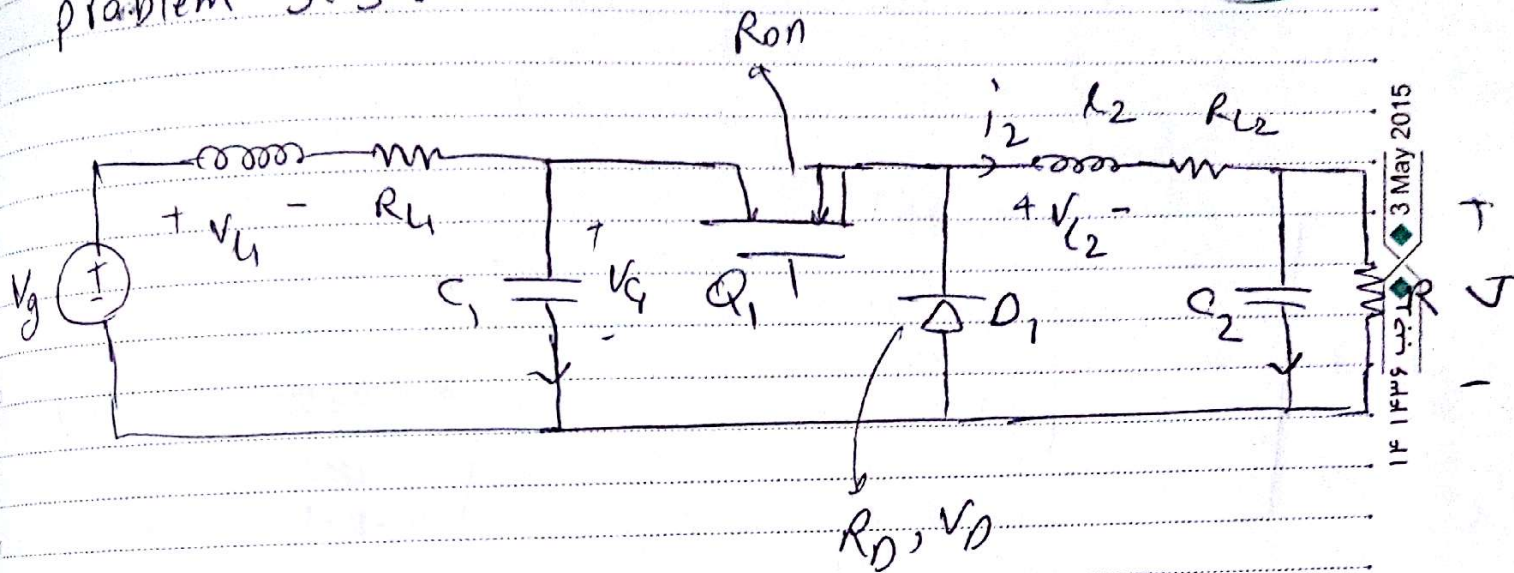 problem
Ron
i2 L2 RL2
+ VL1 - RL1
+ VL2 -
Vg
+
-
C1
+
VC1
-
Q1
D1
C2
R
+
V
-
RD, VD
3 May 2015
۱۴ رجب ۱۴۳۶